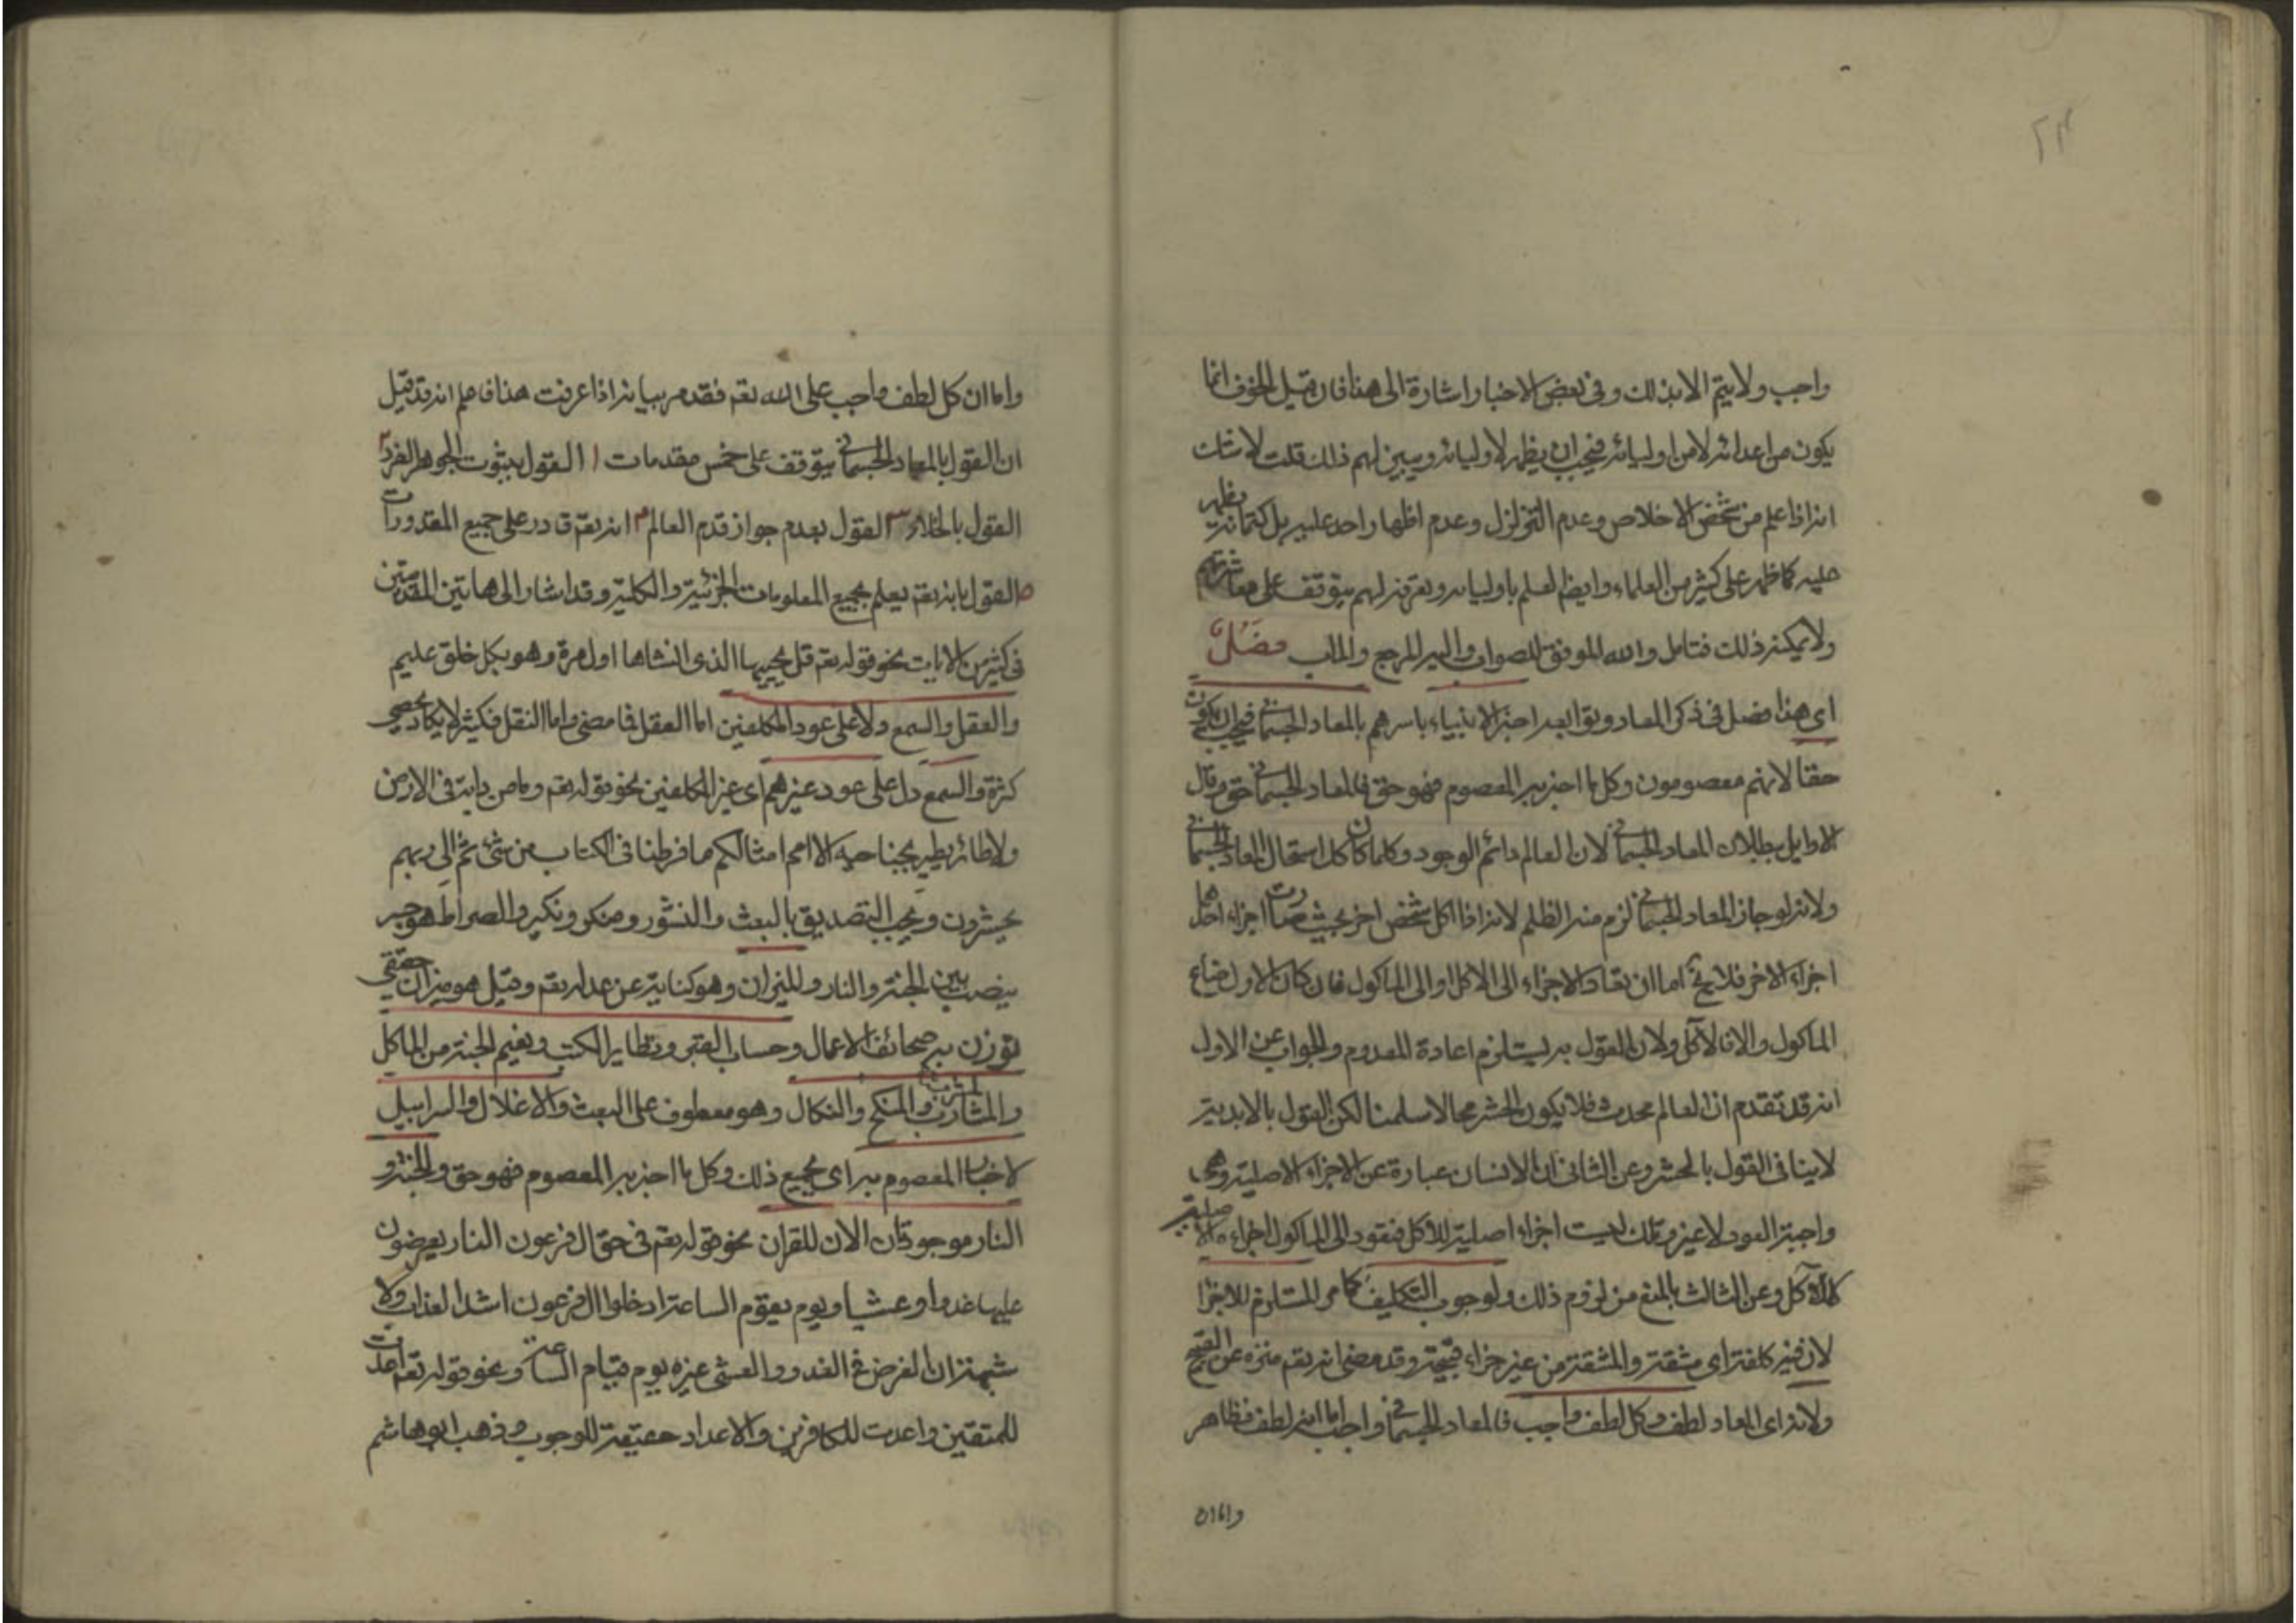 ٢٣
واجب ولا يتم الا بذلك وفى بعض الاخبار اشارة الى هذا فان قيل الخوف انما
يكون من اعدائه لا من اوليائه فيجب ان يظهر لاوليائه ويبين لهم ذلك قلت لا شك
انه اذا علم من شخص الاخلاص وعدم التزلزل وعدم اظهار احد عليه بل كتمانه يظهر
عليه كما ظهر على كثير من العلماء وايضا لعلم باوليائه وتعرفه لهم يتوقف على معاشرتهم
ولا يمكنه ذلك فتامل والله الموفق للصواب واليه المرجع والماب فصل
اى هذا فصل فى ذكر المعاد وتوابعه اخبر الانبياء باسرهم بالمعاد الجسمانى فيجب ان يكون
حقا لانهم معصومون وكل ما اخبر به المعصوم فهو حق فالمعاد الجسمانى حق وقال
الاوايل ببطلان المعاد الجسمانى لان العالم دائم الوجود وكلما كان كل استحال المعاد الجسمانى
ولانه لو جاز المعاد الجسمانى لزم منه الظلم لانه اذا اكل شخص اخر بحيث صارت اجزاء احدهما
اجزاء الاخر فلا يخ اما ان تعاد الاجزاء الى الاكل او الى الماكول فان كان الاول ضاع
الماكول والا فالآكل ولان القول به يستلزم اعادة المعدوم والجواب عن الاول
انه قد تقدم ان العالم محدث فلا يكون الحشر محالا سلمنا لكن القول بالابدية
لا ينافى القول بالحشر وعن الثانى ان الانسان عبارة عن الاجزاء الاصلية وهى
واجبة العود لا غير وتلك ليست اجزاء اصلية للاكل فتعود الى الماكول اجزاءه الاصلية
كالآكل وعن الثالث بالمنع من لزوم ذلك ولوجوب التكليف كما مر المستلزم للاجزا
لان فيه كلفة اى مشقة والمشقة من غير جزاء قبيحة وقد مضى انه تعم منزه عن القبح
ولانه اى المعاد لطف وكل لطف واجب فالمعاد الجسمانى واجب اما انه لطف فظاهر
واما ان
واما ان كل لطف واجب على الله تعم فقد مر بيانه اذا عرفت هذا فاعلم انه قد قيل
ان القول بالمعاد الجسمانى يتوقف على خمس مقدمات ١ القول بثبوت الجوهر الفرد ٢
القول بالخلاء ٣ القول بعدم جواز قدم العالم ٤ انه تعم قادر على جميع المقدورات
٥ القول بانه تعم يعلم بجميع المعلومات الجزئية والكلية وقد اشار الى هاتين المقدمتين
فى كثير من الايات نحو قوله تعم قل يحييها الذى انشاها اول مرة وهو بكل خلق عليم
والعقل والسمع دلا على عود المكلفين اما العقل فما مضى واما النقل فكثير لا يكاد يحصى
كثرة والسمع دل على عود غيرهم اى غير المكلفين نحو قوله تعم وما من دابة فى الارض
ولا طائر يطير بجناحيه الا امم امثالكم ما فرطنا فى الكتاب من شئ ثم الى ربهم
يحشرون ويجب التصديق بالبعث والنشور ومنكر ونكير والصراط هو جسر
ينصب بين الجنة والنار والميزان وهو كناية عن عدله تعم وقيل هو ميزان حقيقى
توزن به صحائف الاعمال وحساب القبر وتطاير الكتب ونعيم الجنة من الماكل
والمشارب والمنكح والنكال وهو معطوف على البعث والاغلال والسرابيل
لاخبار المعصوم به اى بجميع ذلك وكل ما اخبر به المعصوم فهو حق والجنة و
النار موجودتان الان للقران نحو قوله تعم فى حق ال فرعون النار يعرضون
عليها غدوا وعشيا ويوم يقوم الساعة ادخلوا ال فرعون اشد العذاب ولا
شبهة ان العرض فى الغدو والعشى غيره يوم قيام الساعة ونحو قوله تعم اعدت
للمتقين واعدت للكافرين والاعداد حقيقة للوجوب وذهب ابو هاشم